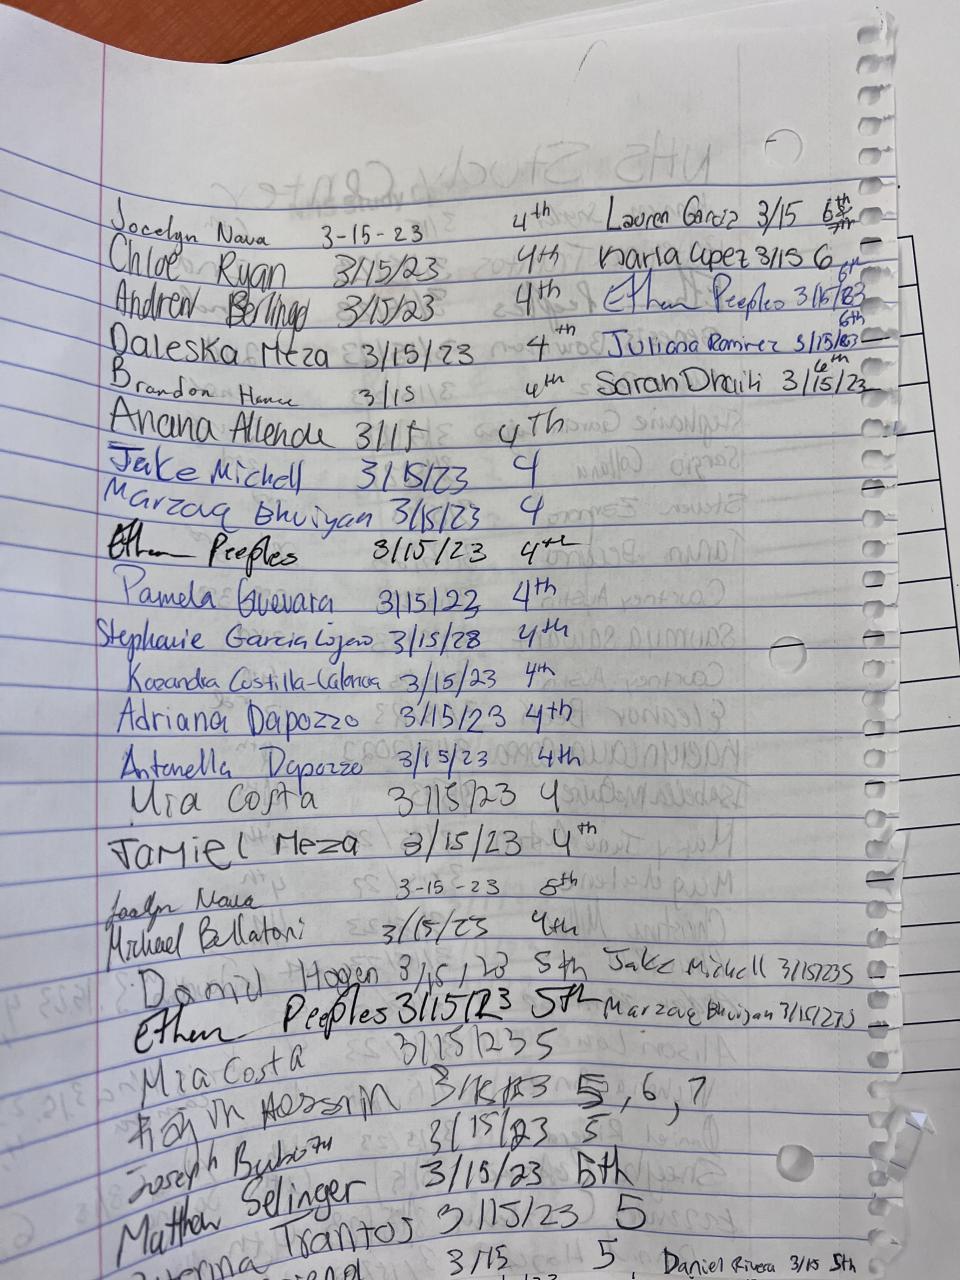 Jocelyn Nava 3-15-23 4th Lauren Garcia 3/15 6th
Chloe Ryan 3/15/23 4th Karla Lopez 3/15 6
Andrew Berlingo 3/15/23 4th Ethan Peeples 3/15/23 6th
Daleska Meza 3/15/23 4th Juliana Ramirez 3/15/23 6th
Brandon 3/15 4th Sarah Dhaiti 3/15/23 6th
Ariana Allende 3/15 4th
Jake Michell 3/15/23 4
Marzaq Bhuiyan 3/15/23 4
Ethan Peeples 3/15/23 4th
Pamela Guevara 3/15/23 4th
Stephanie Garcia Lojano 3/15/23 4th
Kazandra Costilla- 3/15/23 4th
Adriana Dapozzo 3/15/23 4th
Antonella Dapozzo 3/15/23 4th
Mia Costa 3/15/23 4
Jamiel Meza 3/15/23 4th
Jocelyn Nava 3-15-23 5th
Michael Bellatoni 3/15/23 4th
Daniel Hogen 3/15/23 5th Jake Michell 3/15/23 5
Ethan Peeples 3/15/23 5th Marzaq Bhuiyan 3/15/23 5
Mia Costa 3/15/23 5
Hossain 3/15/23 5, 6, 7
Joseph 3/15/23 5
Matthew Selinger 3/15/23 5th
Trantos 3/15/23 5
3/15 5 Daniel Rivera 3/15 5th